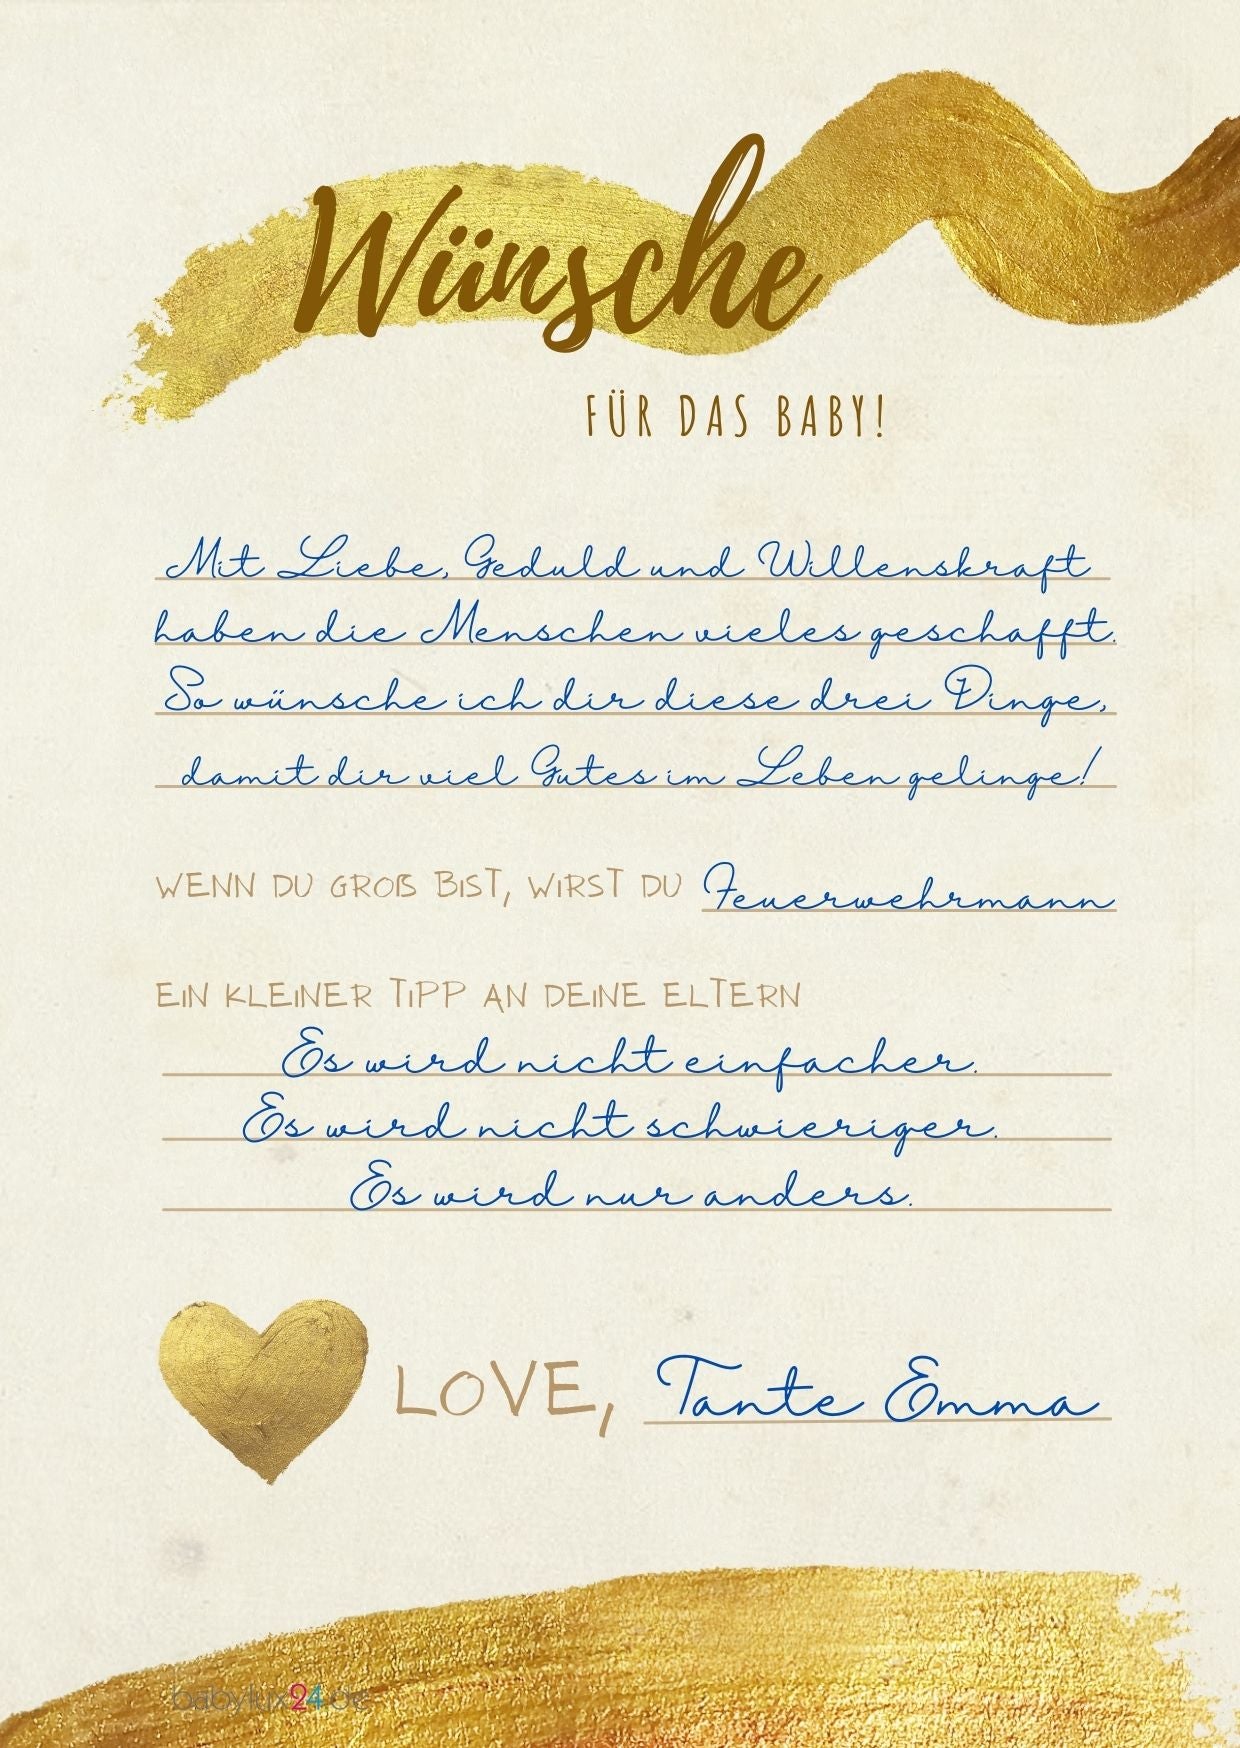 Wünsche
FÜR DAS BABY!
Mit Liebe, Geduld und Willenskraft
haben die Menschen vieles geschafft.
So wünsche ich dir diese drei Dinge,
damit dir viel Gutes im Leben gelinge!
WENN DU GROß BIST, WIRST DU Feuerwehrmann
EIN KLEINER TIPP AN DEINE ELTERN
Es wird nicht einfacher.
Es wird nicht schwieriger.
Es wird nur anders.
LOVE, Tante Emma
babylux24.de